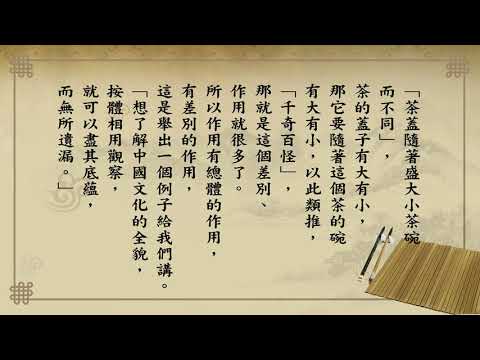 「茶蓋隨著盛大小茶碗
而不同」，
茶的蓋子有大有小，
那它要隨著這個茶的碗
有大有小，以此類推，
「千奇百怪」，
那就是這個差別、
作用就很多了。
所以作用有總體的作用，
有差別的作用，
這是舉出一個例子給我們講。
「想了解中國文化的全貌，
按體相用觀察，
就可以盡其底蘊，
而無所遺漏。」